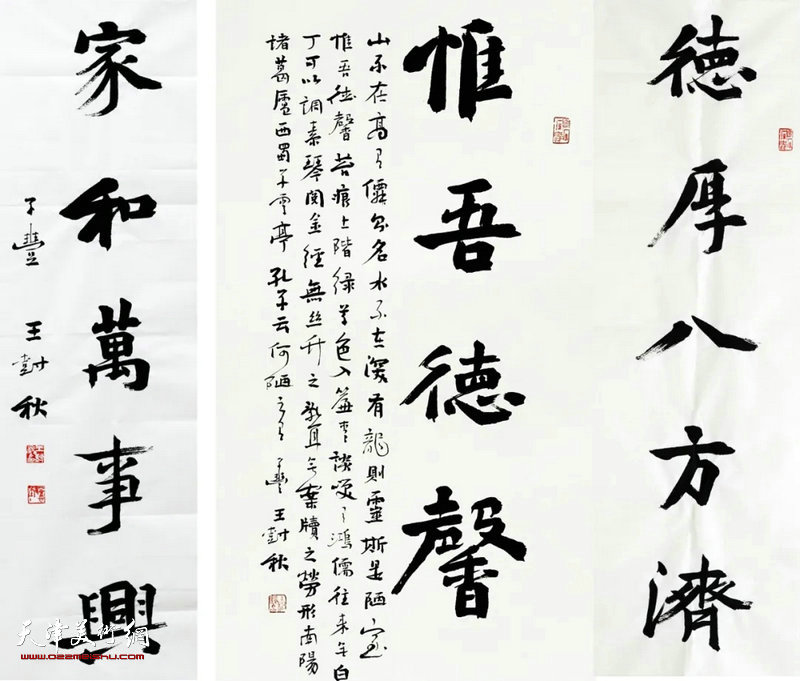 德厚八方濟
惟吾德馨
山不在高有僊則名水不在深有龍則靈斯是陋室
惟吾德馨苔痕上階緑草色入簾青談笑有鴻儒往来無白
丁可以調素琴閱金經無絲竹之亂耳無案牘之勞形南陽
諸葛廬西蜀子雲亭孔子云何陋之有 子豐王尌秋
家和萬事興
子豐 王尌秋
天津美術網
www.022meishu.com